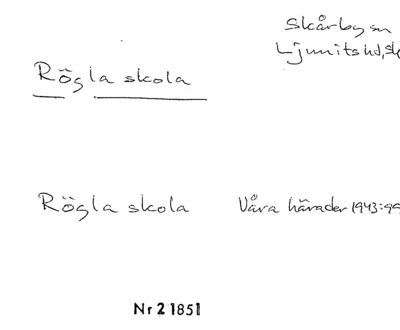 Skårby sn
Ljunits hd, Sk
Rögla skola
Rögla skola Våra härader 1943:99
Nr 21851